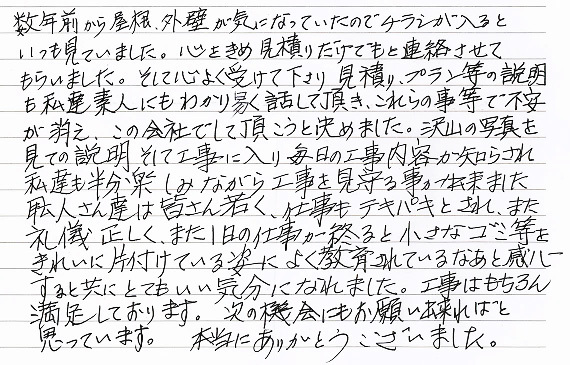 数年前から屋根、外壁が気になっていたのでチラシが入ると
いつも見ていました。心をきめ見積りだけでもと連絡させて
もらいました。そして心よく受けて下さり見積り、プラン等の説明
も私達素人にもわかり易く話して頂き、これらの事等で不安
が消え、この会社でして頂こうと決めました。沢山の写真を
見ての説明そして工事に入り毎日の工事内容が知らされ
私達も半分楽しみながら工事を見守る事が出来ました
職人さん達は皆さん若く、仕事もテキパキとされ、また
礼儀正しく、また1日の仕事が終ると小さなゴミ等を
きれいに片付けている姿によく教育されているなあと感心
すると共にとてもいい気分になれました。工事はもちろん
満足しております。次の機会にもお願い出来ればと
思っています。本当にありがとうございました。